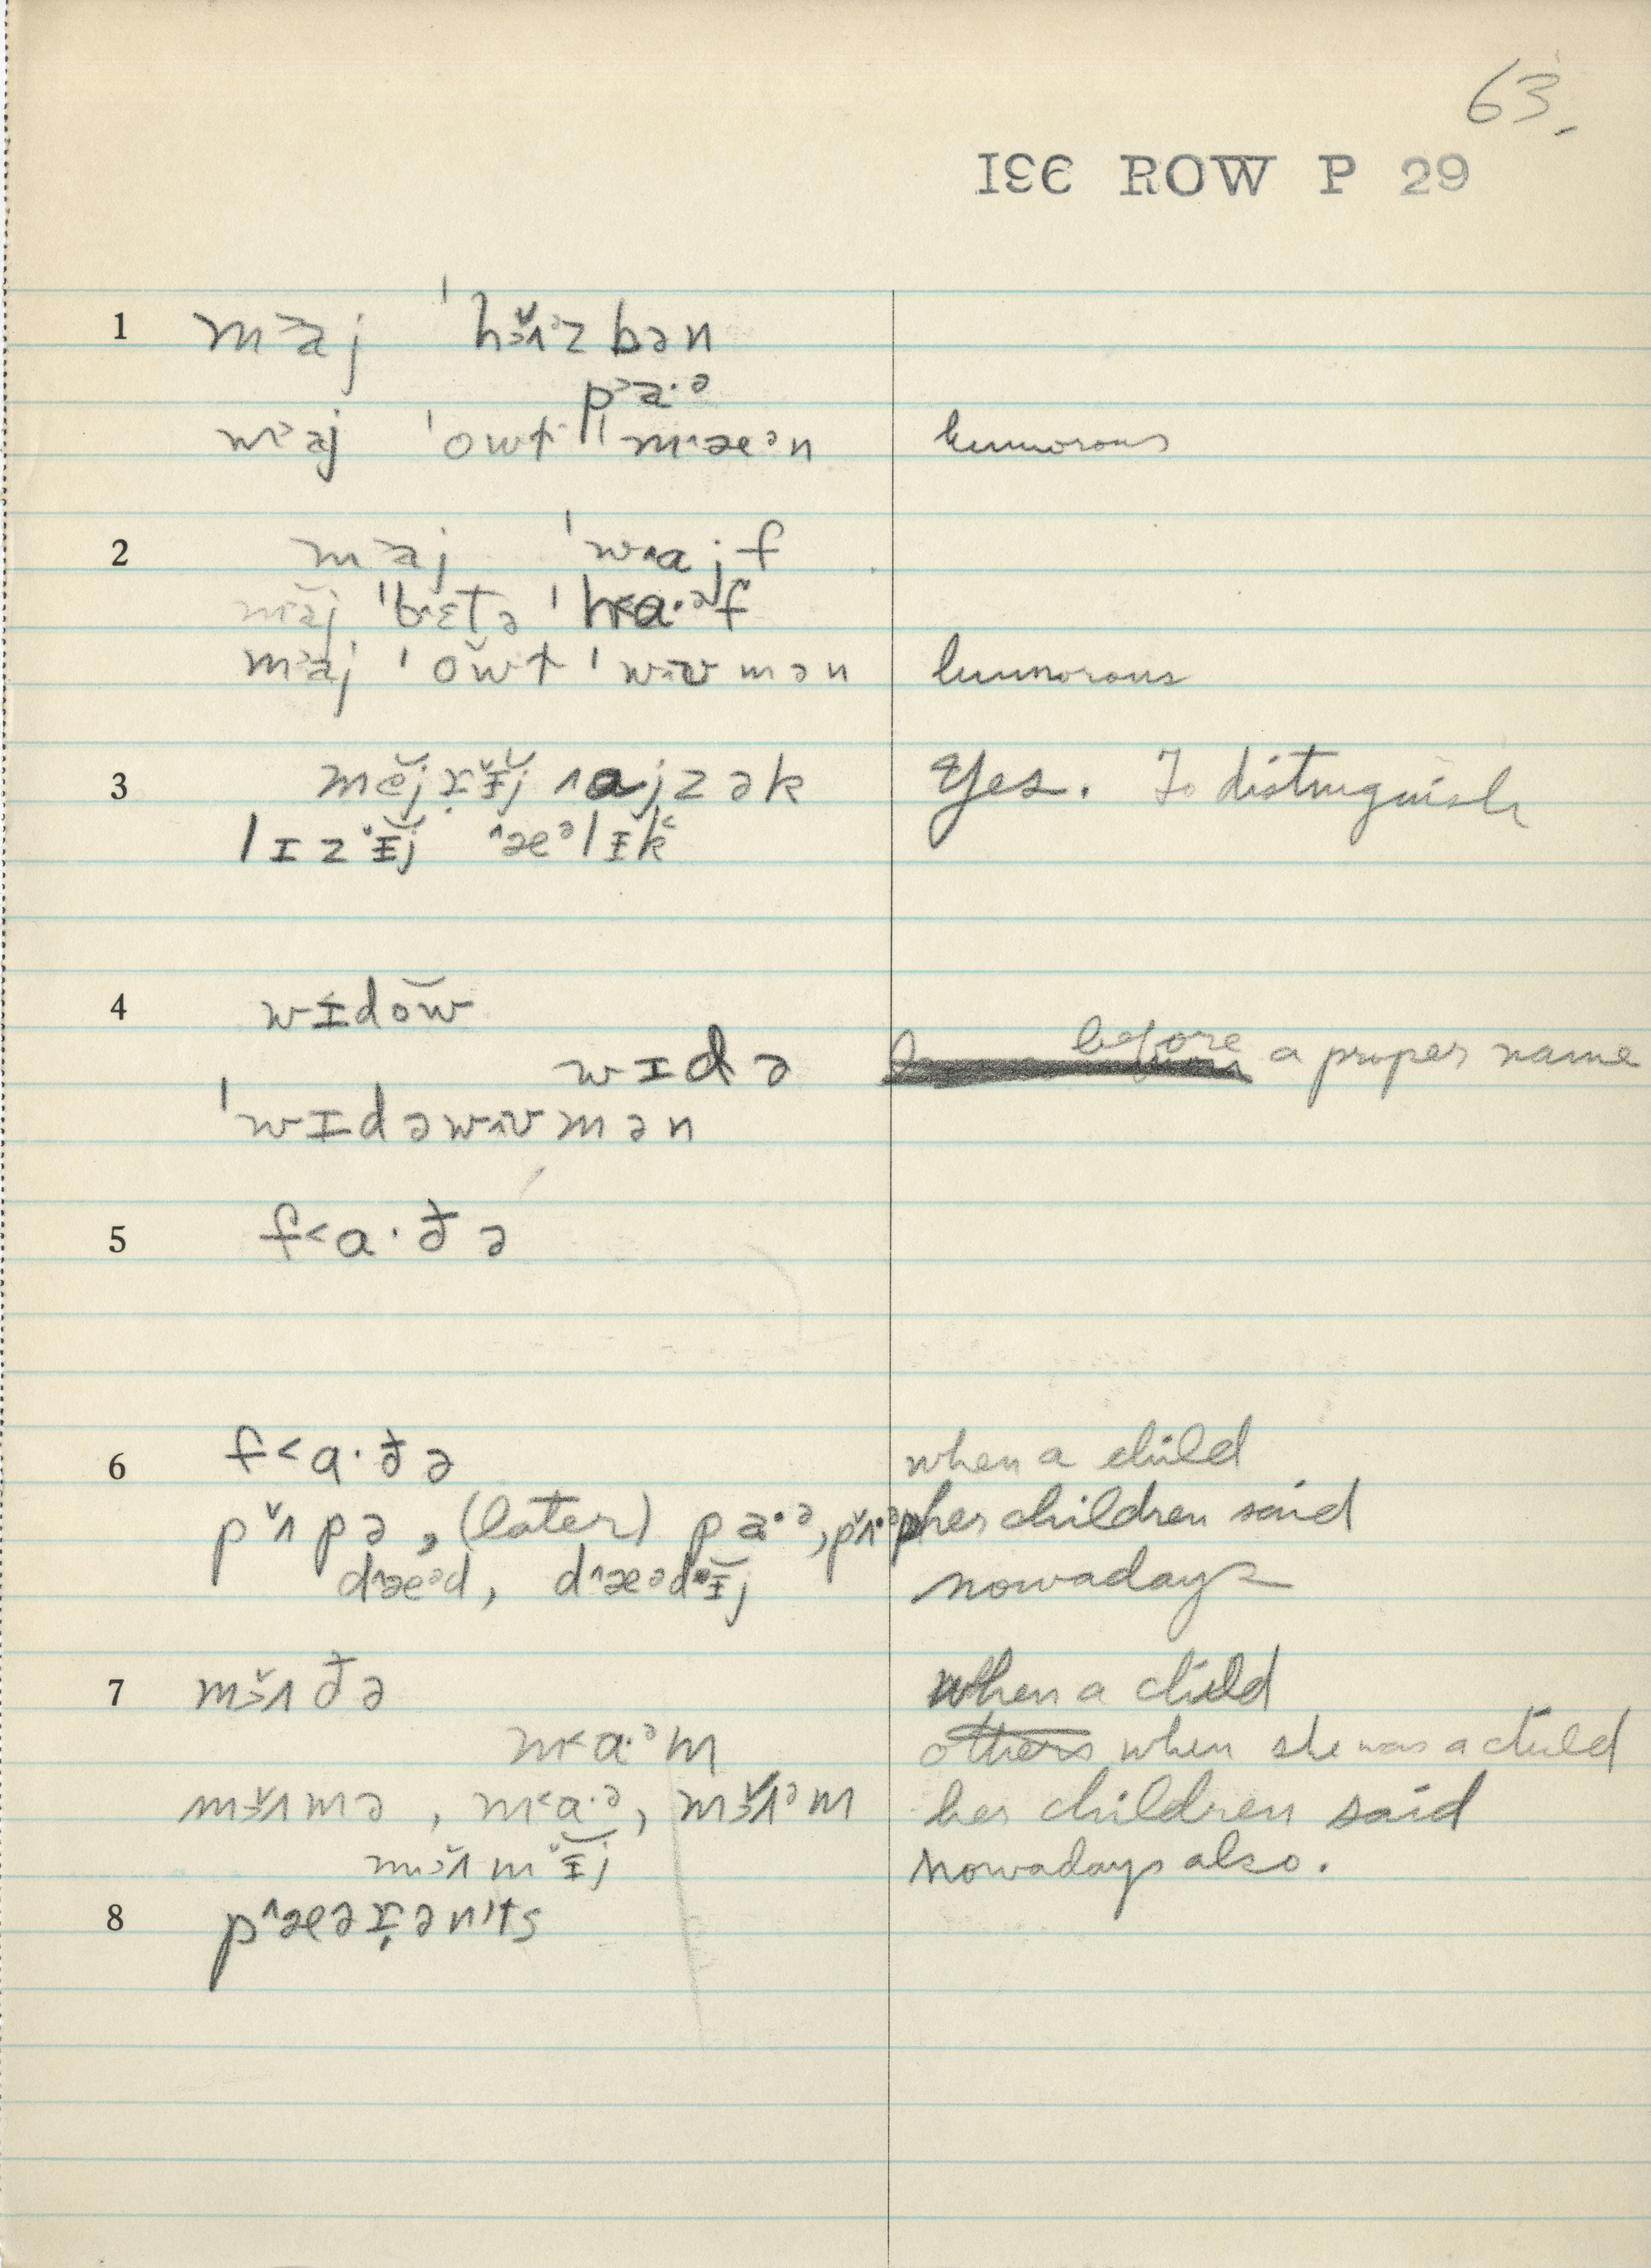 63.
I33 ROW P 29
1 m˃aj ˈhɜ̆ʌᵊzbən
p˃a·ᵊ
m˃aj ˈowɫ ˈm^æᵊn humorous
2 m˃aj ˈw^ajf
m˃aj ˈb^ɛtə ˈh˂a·ᵊf
m˃aj ˈŏwɫ ˈw^ʊmən humorous
3 mĕjrɪ̆j ^ajzək Yes. To distinguish
lɪzɪ̆j ^æᵊlɪk
4 wɪdŏw
wɪdə before a proper name
ˈwɪdəw^ʊmən
5 f˂a·ðə
6 f˂a·ðə when a child
pʌ̆pə, (later) pa·ᵊ, pʌ̆·ᵊp her children said
d^æᵊd, d^æᵊdɪ̆j nowadays
7 mɜ̆ʌðə when a child
m˂a·ᵊm others when she was a child
mɜ̆ʌmə, m˂a·ᵊ, mɜ̆ʌᵊm her children said
mɜ̆ʌmɪ̆j nowadays also.
8 p^æərənˈts